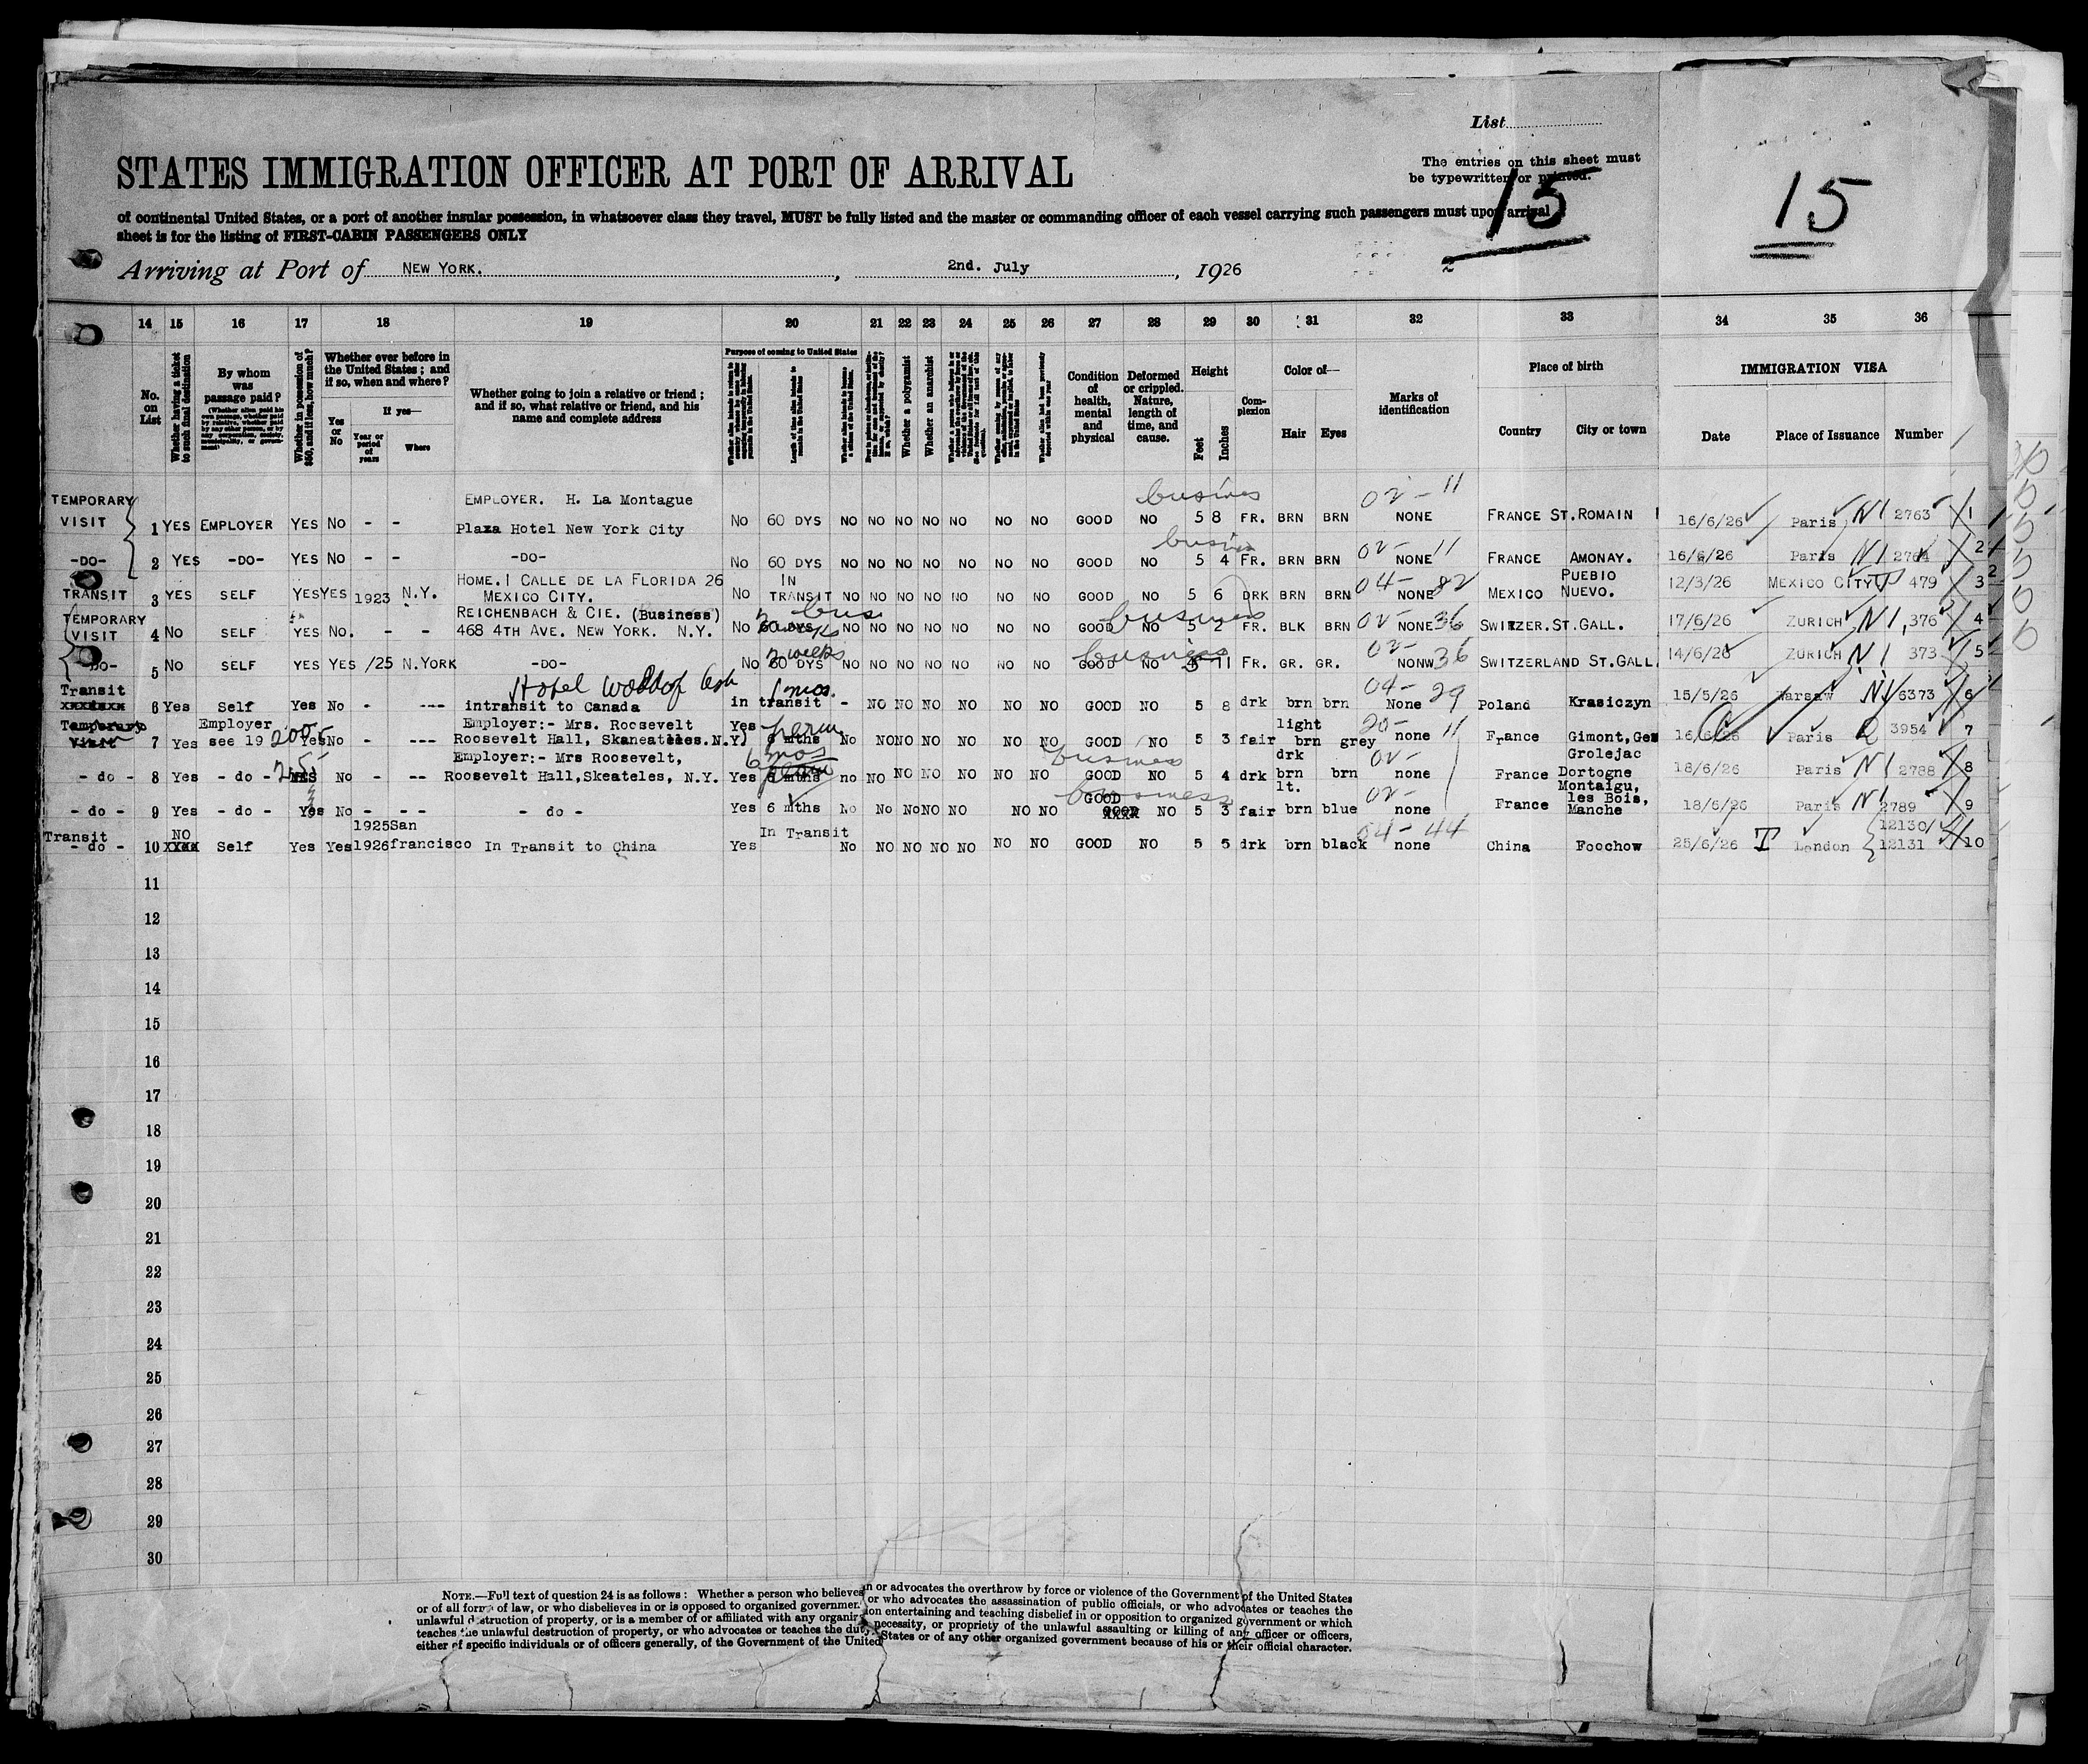 List
STATES IMMIGRATION OFFICER AT PORT OF ARRIVAL
The entries on this sheet must
be typewritten or printed.
15
15
of continental United States, or a port of another insular possession, in whatsoever class they travel, MUST be fully listed and the master or commanding officer of each vessel carrying such passengers must upon arrival
sheet is for the listing of FIRST-CABIN PASSENGERS ONLY
Arriving at Port of NEW YORK. , 2nd. July , 1926
14 15 16 17 18 19 20 21 22 23 24 25 26 27 28 29 30 31 32 33 34 35 36
No. on List
Whether having a ticket to such final destination
By whom was passage paid?
Whether in possession of $50, and if less, how much?
Whether ever before in the United States; and if so, when and where?
Yes or No
If yes—
Year or period of years
Where
Whether going to join a relative or friend; and if so, what relative or friend, and his name and complete address
Purpose of coming to United States
Length of time alien intends to remain in the United States
Whether a polygamist
Whether an anarchist
Condition of health, mental and physical
Deformed or crippled. Nature, length of time, and cause.
Height
Feet
Inches
Complexion
Color of—
Hair
Eyes
Marks of identification
Place of birth
Country
City or town
IMMIGRATION VISA
Date
Place of Issuance
Number
TEMPORARY EMPLOYER. H. La Montague busines 02 - 11
VISIT 1 YES EMPLOYER YES No - - Plaza Hotel New York City No 60 DYS NO NO NO NO NO NO NO GOOD NO 5 8 FR. BRN BRN NONE FRANCE ST.ROMAIN 16/6/26 Paris N1 2763 1
-DO- 2 YES -DO- YES No - - -DO- No 60 DYS NO NO NO NO NO NO NO GOOD NO 5 4 FR. BRN BRN 02- NONE 11 FRANCE AMONAY. 16/6/26 Paris N1 2764 2
HOME. 1 CALLE DE LA FLORIDA 26 IN PUEBIO
TRANSIT 3 YES SELF YES YES 1923 N.Y. MEXICO CITY. No TRANSIT NO NO NO NO NO NO NO GOOD NO 5 6 DRK BRN BRN 04- NONE 82 MEXICO NUEVO. 12/3/26 MEXICO CITY 479 3
TEMPORARY REICHENBACH & CIE. (Business) bus business
VISIT 4 NO SELF YES No. - - 468 4TH AVE. NEW YORK. N.Y. No 60 DYS NO NO NO NO NO NO NO GOOD NO 5 2 FR. BLK BRN 02 NONE 36 SWITZER. ST.GALL. 17/6/26 ZURICH N1 376 4
2 weeks business 02-
-DO- 5 NO SELF YES YES /25 N.YORK -DO- No 60 DYS NO NO NO NO NO NO NO GOOD NO 11 FR. GR. GR. NONW 36 SWITZERLAND ST.GALL. 14/6/26 ZURICH N1 373 5
Transit Hotel 1 mos. 04- 29
xxxxxxx 6 Yes Self Yes No - --- intransit to Canada in transit - NO NO NO NO NO NO GOOD NO 5 8 drk brn brn None Poland Krasiczyn 15/5/26 Warsaw N1 6373 6
Temporary Employer 200 Employer:- Mrs. Roosevelt Yes perm light 20- 11
Visit 7 Yes see 19 Yes No - --- Roosevelt Hall, Skaneateles.N.Y. 6 mths No NO NO NO NO NO NO GOOD NO 5 3 fair brn grey none France Gimont, 16/6/26 Paris Q 3954 7
Employer:- Mrs Roosevelt, 6 mos business drk 02- Grolejac
- do - 8 Yes - do - YES No - -- Roosevelt Hall,Skeateles, N.Y. Yes 6 mths no NO NO NO NO NO NO GOOD NO 5 4 drk brn brn none France Dortogne 18/6/26 Paris N1 2788 8
business GOOD lt. 02- Montaigu,
- do - 9 Yes - do - Yes No - -- - do - Yes 6 mths No No No NO NO NO NO xxxx NO 5 3 fair brn blue none France les Bois, Manche 18/6/26 Paris N1 2789 9
Transit NO 1925 San In Transit 04- 44 12130/
- do - 10 xxxx Self Yes Yes 1926 francisco In Transit to China Yes No NO NO NO NO NO NO GOOD NO 5 5 drk brn black none China Foochow 25/6/26 T London 12131 10
11
12
13
14
15
16
17
18
19
20
21
22
23
24
25
26
27
28
29
30
NOTE.—Full text of question 24 is as follows: Whether a person who believes in or advocates the overthrow by force or violence of the Government of the United States
or of all forms of law, or who disbelieves in or is opposed to organized government, or who advocates the assassination of public officials, or who advocates or teaches the
unlawful destruction of property, or is a member of or affiliated with any organization entertaining and teaching disbelief in or opposition to organized government or which
teaches the unlawful destruction of property, or who advocates or teaches the duty, necessity, or propriety of the unlawful assaulting or killing of any officer or officers,
either of specific individuals or of officers generally, of the Government of the United States or of any other organized government because of his or their official character.